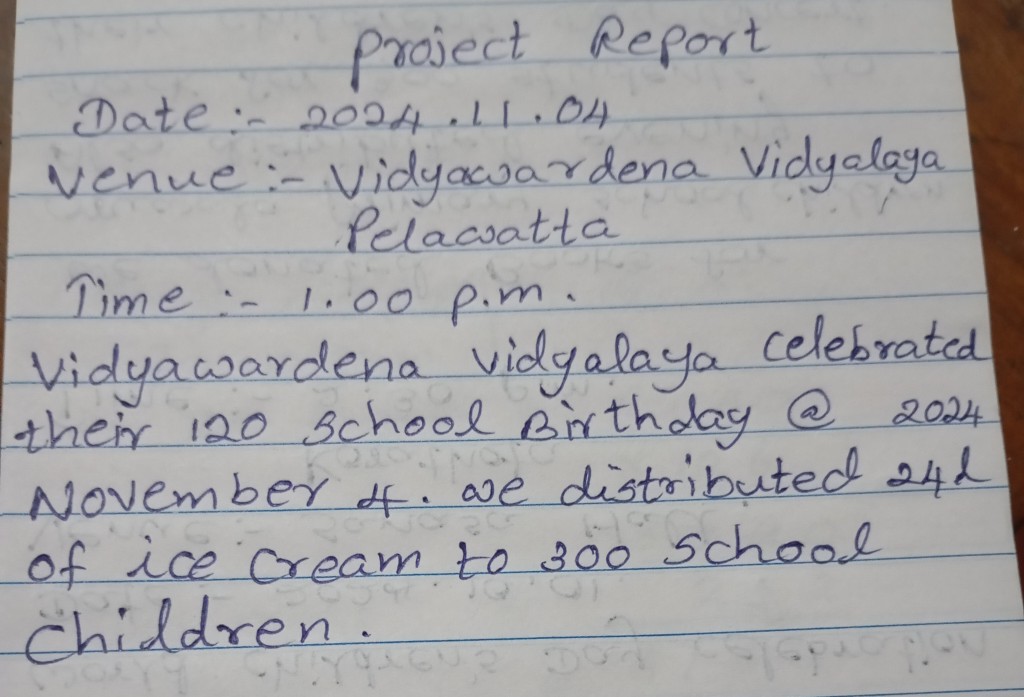 Project Report
Date :- 2024.11.04
Venue :- Vidyawardena Vidyalaya
Pelawatta
Time :- 1.00 p.m.
Vidyawardena Vidyalaya celebrated
their 120 School Birthday @ 2024
November 4. we distributed 24l
of ice cream to 300 School
Children.